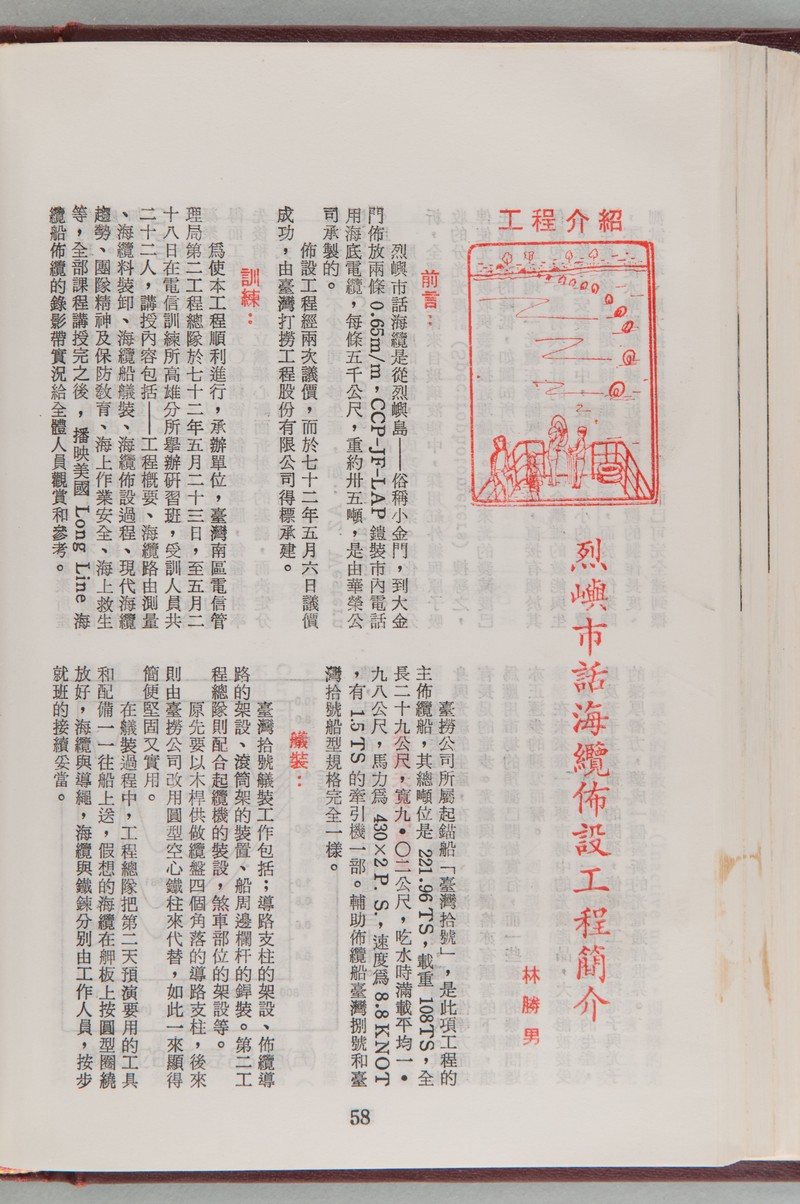 工程介紹
烈嶼市話海纜佈設工程簡介
林勝男
前言：
烈嶼市話海纜是從烈嶼島——俗稱小金門，到大金
門佈放兩條0.65m/m，CCP-JF-LAP鎧裝市內電話
用海底電纜，每條五千公尺，重約卅五噸，是由華榮公
司承製的。
佈設工程經兩次議價，而於七十二年五月六日議價
成功，由臺灣打撈工程股份有限公司得標承建。
訓練：
爲使本工程順利進行，承辦單位，臺灣南區電信管
理局第二工程總隊於七十二年五月二十三日，至五月二
十八日在電信訓練所高雄分所舉辦研習班，受訓人員共
二十二人，講授內容包括——工程概要、海纜路由測量
、海纜料裝卸、海纜船艤裝、海纜佈設過程、現代海纜
趨勢、團隊精神及保防教育、海上作業安全、海上救生
等，全部課程講授完之後，播映美國Long Line海
纜船佈纜的錄影帶實況給全體人員觀賞和參考。
臺撈公司所屬起錨船「臺灣拾號」，是此項工程的
主佈纜船，其總噸位是221.96TS，載重108TS，全
長二十九公尺，寬九•〇二公尺，吃水時滿載平均一•
九八公尺，馬力爲430×2P. S.，速度爲8.8KNOT
，有1.5TS的牽引機一部。輔助佈纜船臺灣捌號和臺
灣拾號船型規格完全一樣。
艤裝：
臺灣拾號艤裝工作包括；導路支柱的架設、佈纜導
路的架設、滾筒架的裝置、船周邊欄杆的銲裝。第二工
程總隊則配合起纜機的裝設，煞車部位的架設等。
原先要以木桿供做纜盤四個角落的導路支柱，後來
則由臺撈公司改用圓型空心鐵柱來代替，如此一來顯得
簡便堅固又實用。
在艤裝過程中，工程總隊把第二天預演要用的工具
和配備一一往船上送，假想的海纜在舺板上按圓型圈繞
放好，海纜與導繩，海纜與鐵鍊分别由工作人員，按步
就班的接續妥當。
58